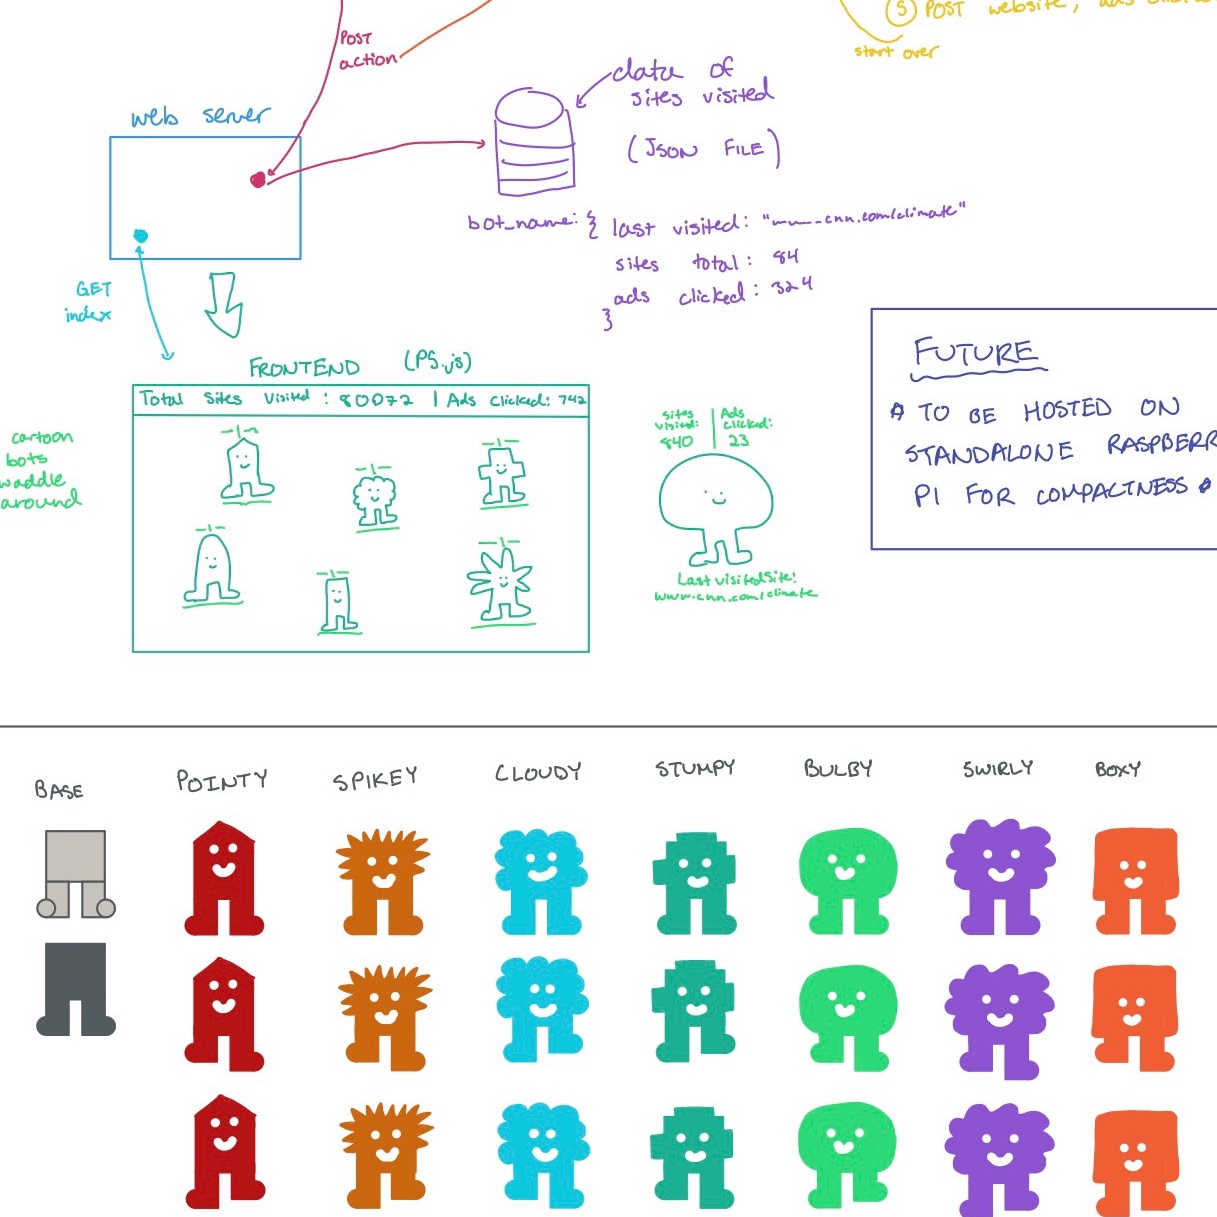 5 POST website,
start over
POST
action
web server
data of
sites visited
(JSON FILE)
bot_name: { last visited: "www.cnn.com/climate"
sites total: 84
ads clicked: 324
}
GET
index
FRONTEND (P5.js)
Total Sites Visited: 80072 | Ads Clicked: 742
cartoon
bots
waddle
around
sites
visited:
840
Ads
clicked:
23
Last visited site:
www.cnn.com/climate
FUTURE
TO BE HOSTED ON
STANDALONE RASPBERR
PI FOR COMPACTNESS
BASE
POINTY
SPIKEY
CLOUDY
STUMPY
BULBY
SWIRLY
BOXY